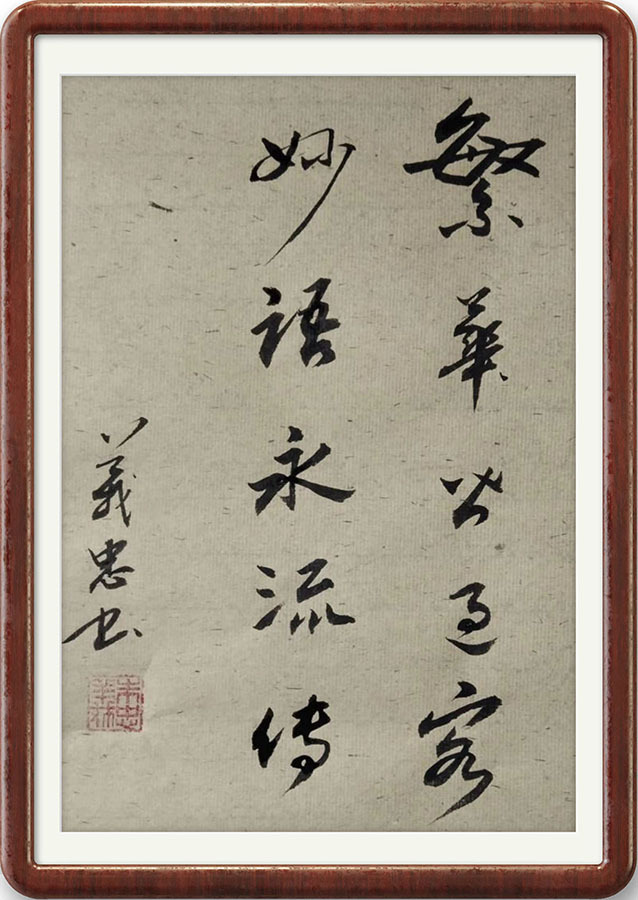 繁華皆過客
妙語永流傳
義忠书